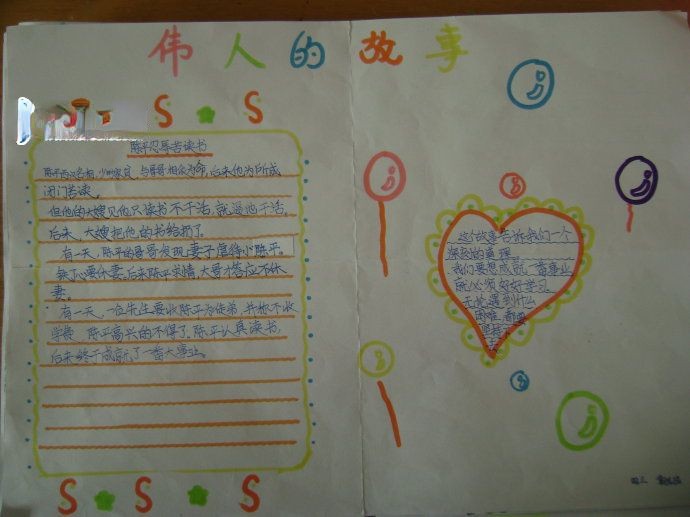 伟人的故事
S S
陈平忍辱苦读书
陈平西汉名相,少时家贫,与哥哥相依为命,后来他为所成
闭门苦读。
但他的大嫂见他只读书不干活,就逼他干活。
后来,大嫂把他的书给扔了。
有一天,陈平的哥哥发现妻子虐待小陈平。
铁了心要休妻,后来陈平求情,大哥才答应不休
妻。
有一天,一位先生要收陈平为徒弟,并板不收
学费,陈平高兴的不得了。陈平认真读书,
后来终于成就了一番大事业。
S S S
这个故事告诉我们一个
深刻的真理
我们要想成就一番事业
就必须好好学习
无论遇到什么
困难,都要
坚持
四三